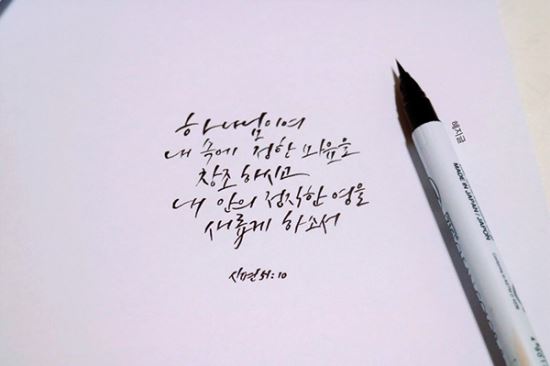 하나님이여
내 속에 정한 마음을
창조하시고
내 안의 정직한 영을
새롭게 하소서
시편 51:10
배지글
MADE IN JAPAN